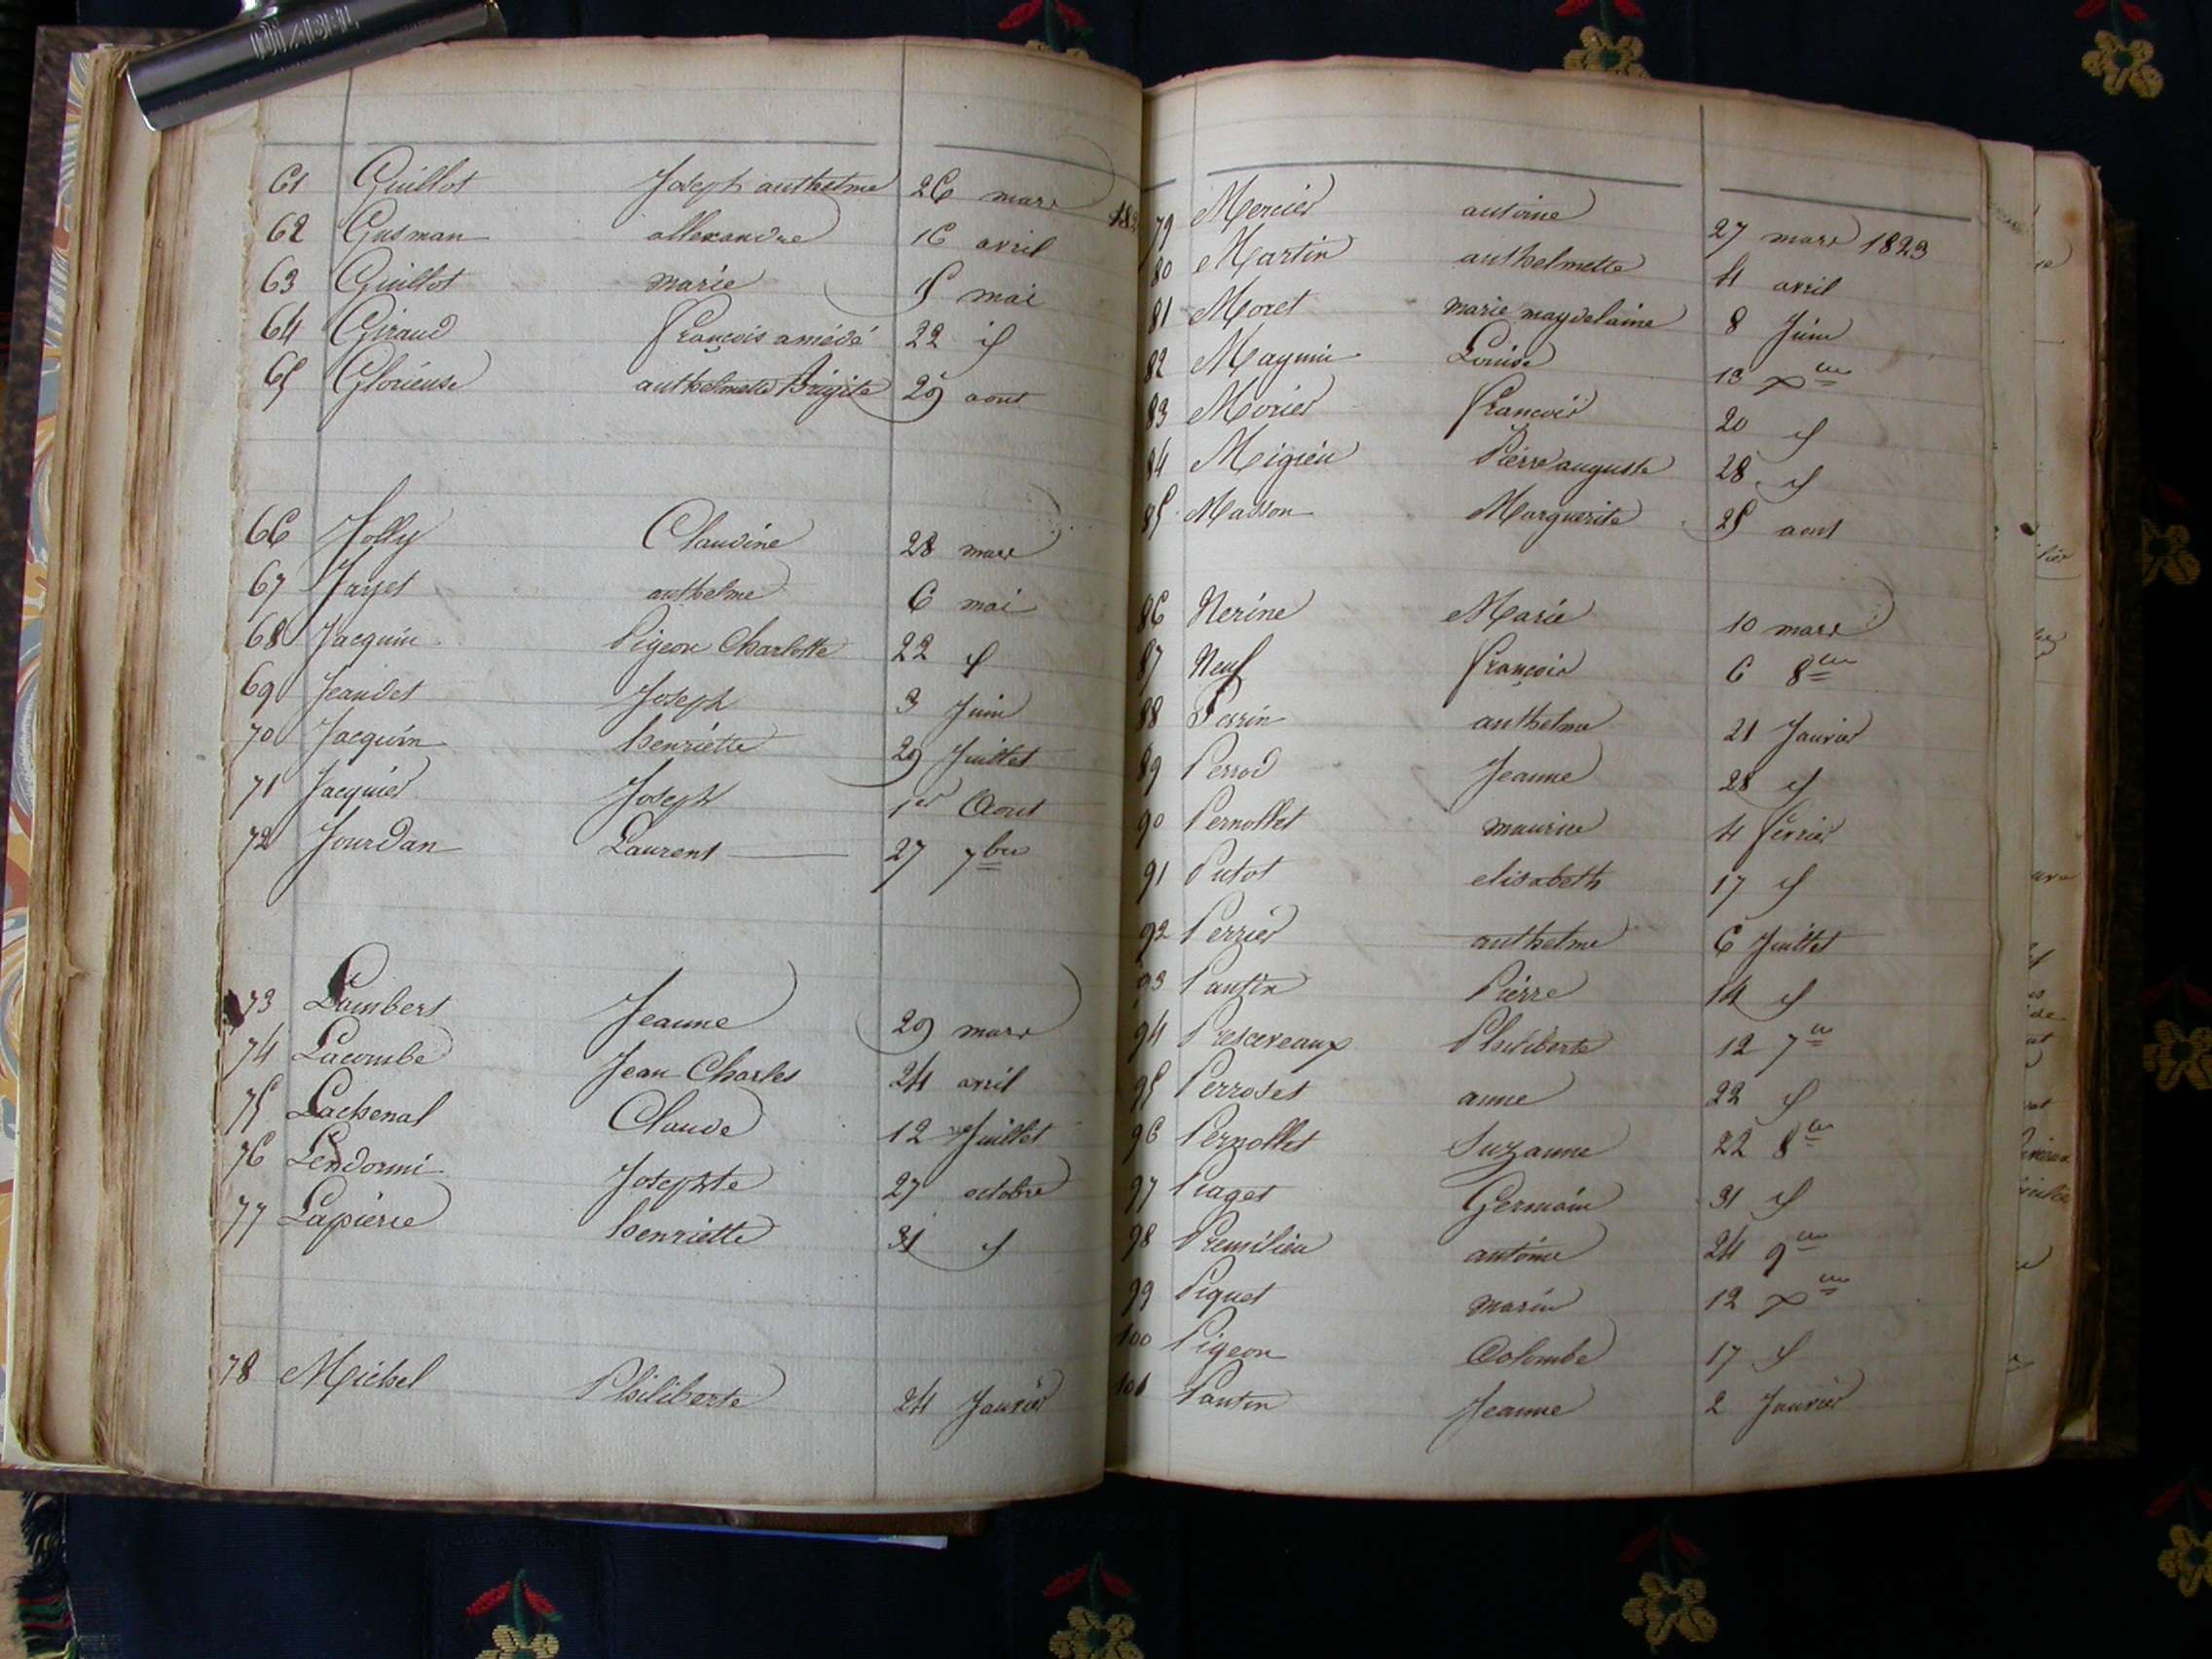 DIABEL
61 Guillot Joseph anthelme 26 mars 182
62 Gusman allexandre 16 avril
63 Guillot marie 15 mai
64 Giraud françois amédé 22 id
65 Glorieuse anthelmette Brigite 29 aout
66 Jolly Claudine 28 mars
67 Jayet anthelme 6 mai
68 Jacquin Pigeon Charlotte 22 id
69 Jeandet Joseph 3 Juin
70 Jacquin henriette 29 Juillet
71 Jacquier Joseph 1er Aout
72 Jourdan Laurent 27 7bre
73 Lambert Jeanne 29 mars
74 Lacombe Jean Charles 24 avril
75 Lachenal Claude 12 Juillet
76 Lendormi Josephte 27 octobre
77 Lapierre henriette 31 id
78 Michel Philiberte 24 Janvier
79 Mercier antoine 27 mars 1823
80 Martin anthelmette 4 avril
81 Moret marie magdelaine 8 Juin
82 Maynin Louise 13 Xbre
83 Morier françois 20 id
84 Migieu Pierre auguste 28 id
85 Masson Marguerite 25 aout
86 Nerine Marie 10 mars
87 Neuf françois 6 8bre
88 Perrin anthelme 21 Janvier
89 Perrod Jeanne 28 id
90 Pernollet maurice 4 fevrier
91 Putot elisabeth 17 id
92 Perrier anthelme 6 Juillet
93 Pantin Pierre 14 id
94 Presceveaux Philiberte 12 7bre
95 Perroset anne 22 id
96 Pernollet Suzanne 22 8bre
97 Piaget Germain 31 id
98 Premilieu antoine 24 9bre
99 Piquet marie 12 Xbre
100 Pigeon Colombe 17 id
101 Pantin Jeanne 2 Janvier